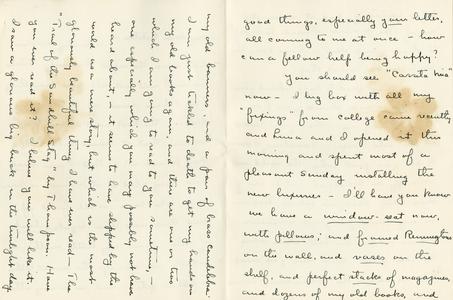 good things, especially your letter,
all coming to me at once – how
can a fellow help being happy?
You should see "Casata mia"
now – I big box with all my
"fixings" from college came recently
and Luna and I opened it this
morning and spent most of a
pleasant Sunday installing the
new luxuries – I'll have you know
we have a window-seat now,
with pillows; and framed Remingtons
on the wall, and vases on the
shelf, and perfect stacks of magazines,
and dozens of my old books, and
my old banners, and a pair of brass candelabra.
I am just tickled to death to get my hands on
my old books again, and there are one or two
which I am going to read to you sometime, –
one especially, which you may possibly not have
heard about, – it seems to have slipped by the
world as a mere story, but which is the most
gloriously beautiful thing I have ever read – The
"Trail of the Sandhill Stag" by Thompson. Have
you ever read it? I believe you will like it.
I saw a glorious big buck in the twilight day